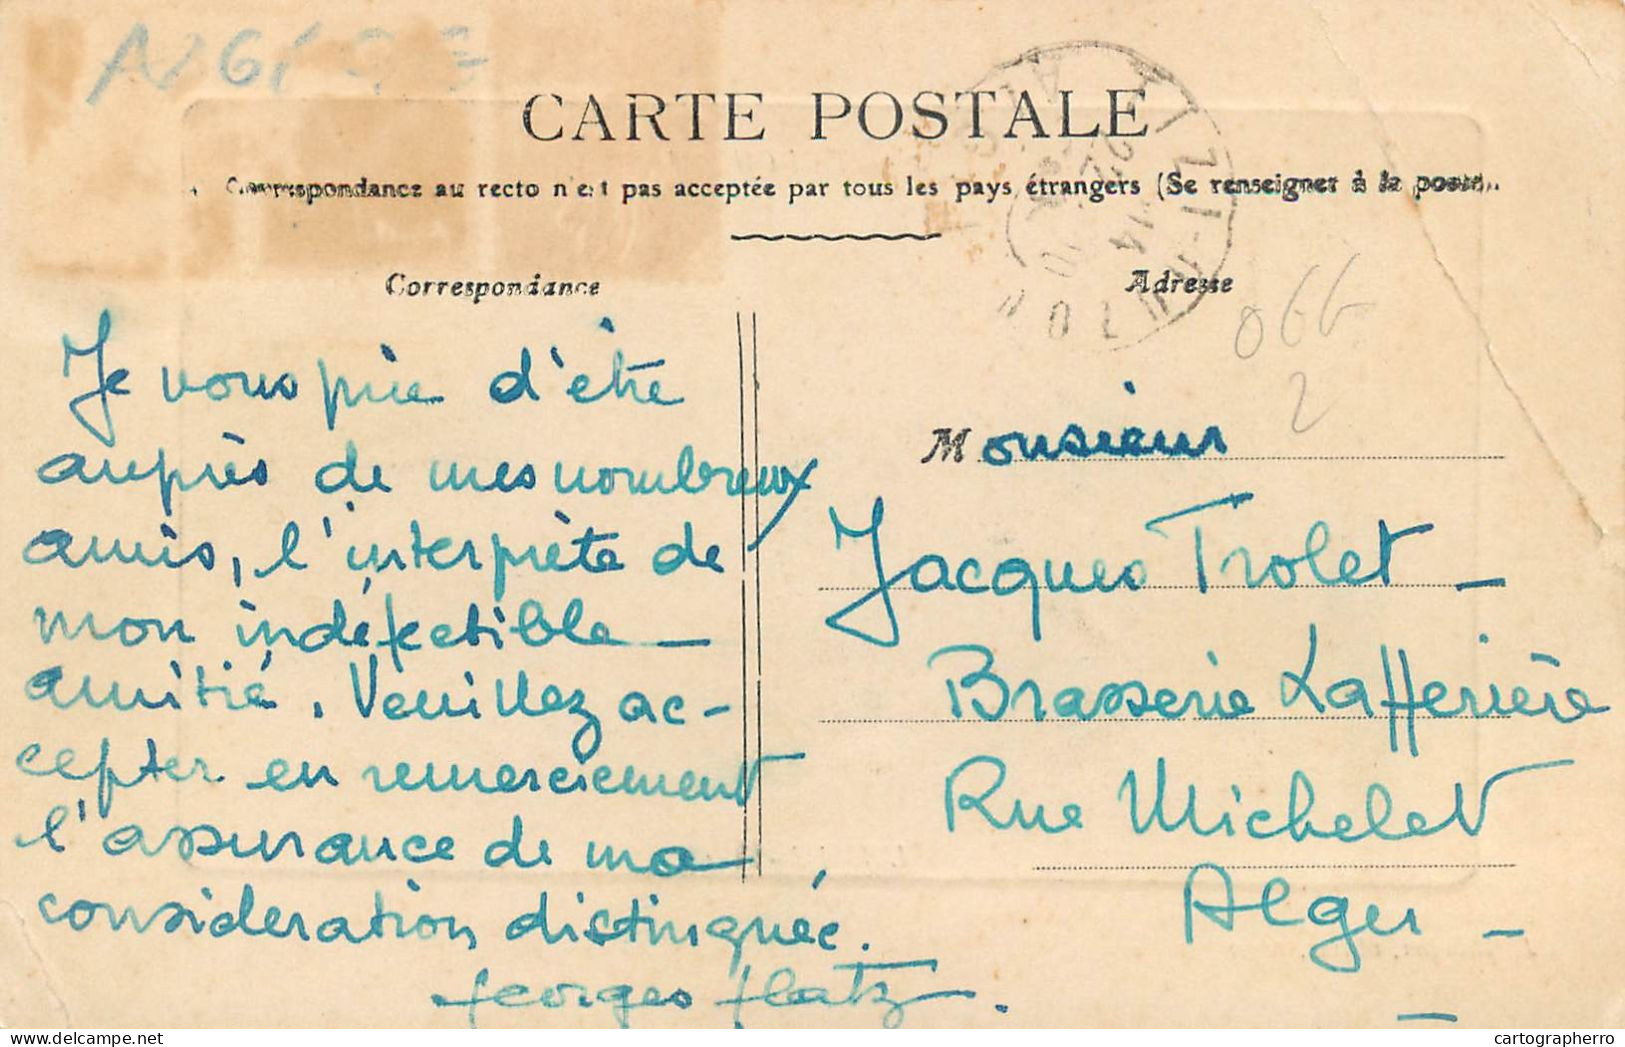 ALGÉRIE
CARTE POSTALE
Correspondance au recto n'est pas acceptée par tous les pays étrangers (Se renseigner à la poste)
Correspondance
Adresse
066
2
Je vous prie d'être
auprès de mes nombreux
amis, l'interprète de
mon indéfectible
amitié. Veuillez ac-
cepter en remerciement
l'assurance de ma
consideration distinguée.
Georges Flatz.
Monsieur
Jacques Trolet -
Brasserie Lafferière
Rue Michelet
Alger -
cartographerro